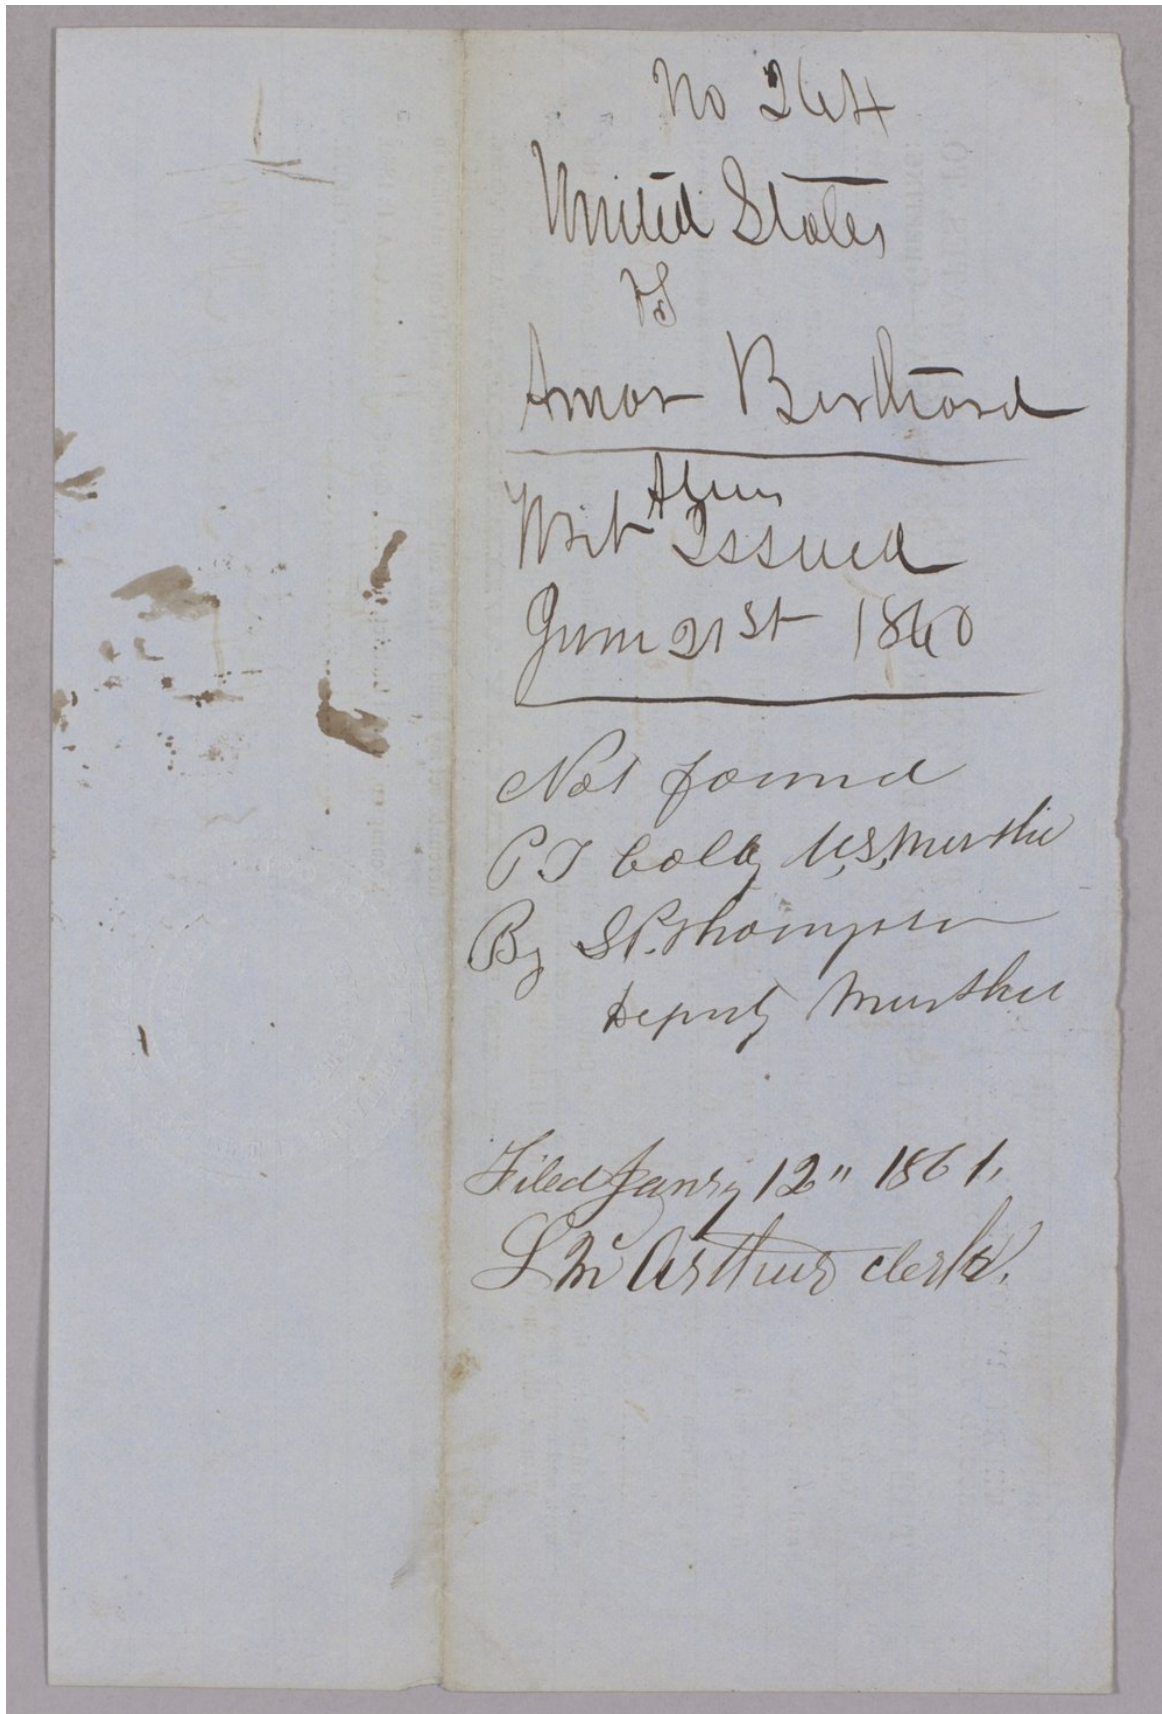 No 264
United States
vs
Amor
Writ Issued
June 21st 1860
Not found
P T Colby U,S, Mershel
By S P. Thompson
Deputy Mershel
Filed Janry 12" 1861.
S Mc Arthur clerk.